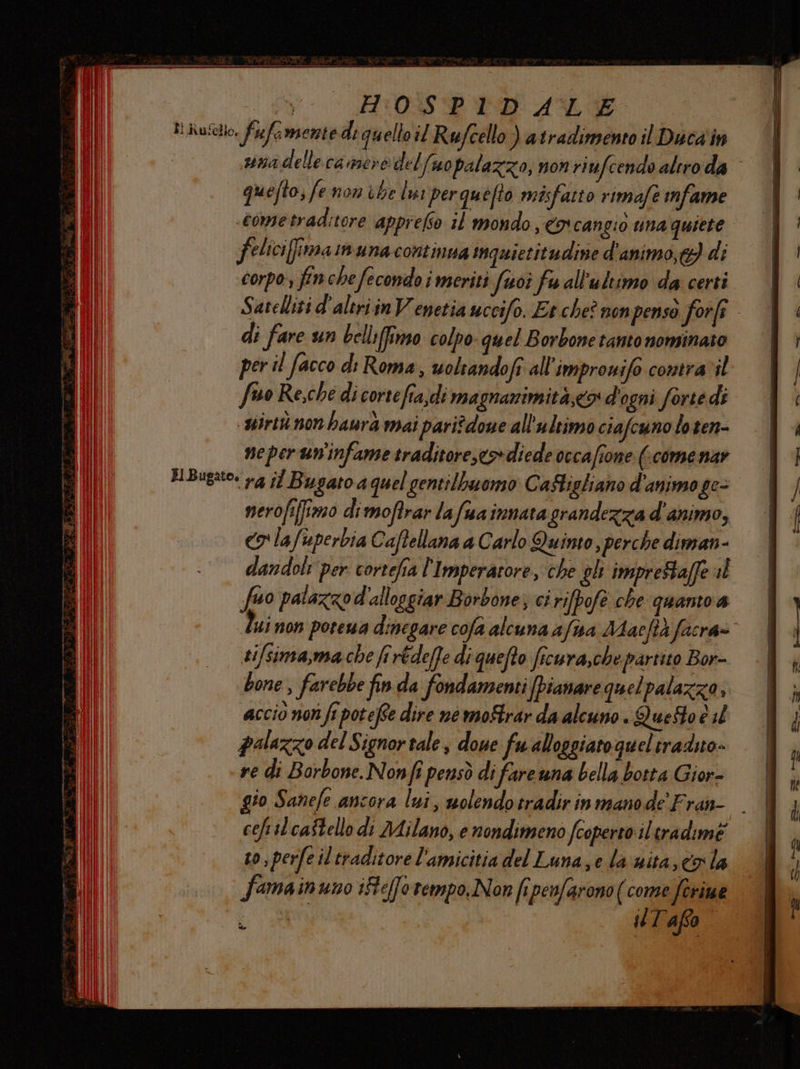 HOSPIDALE
Il Ruscello. fusamente di quello il Ruscello) a tradimento il Duca in
una delle camere del suo palazzo, non riuscendo altro da
questo, se non che lui per questo misfatto rimase infame
come traditore appresso il mondo, & cangiò una quiete
felicissima in una continua inquietitudine d'animo, & di
corpo, fin che secondo i meriti suoi fu all'ultimo da certi
Satelliti d'altri in Venetia ucciso. Et che? non pensò forsi
di fare un bellissimo colpo quel Borbone tanto nominato
per il sacco di Roma, uoltandosi all'improuiso contra il
suo Re, che di cortesia, di magnanimità, & d'ogni sorte di
uirtù non haurà mai pari? doue all'ultimo ciascuno lo ten-
ne per un'infame traditore, & diede occasione (come nar
Il Bugato. ra il Bugato a quel gentilhuomo Castigliano d'animo ge-
nerosissimo di mostrar la sua innata grandezza d'animo,
& la superbia Castellana a Carlo Quinto, perche diman-
dandoli per cortesia l'Imperatore, che gli imprestasse il
suo palazzo d'alloggiar Borbone, ci rispose che quanto a
lui non poteua dinegare cosa alcuna a sua Maestà sacra-
tissima, ma che si rēdesse di questo sicura, che partito Bor-
bone, farebbe fin da fondamenti spianare quel palazzo,
acciò non si potesse dire ne mostrar da alcuno. Questo è il
palazzo del Signor tale, doue fu alloggiato quel tradito-
re di Borbone. Non si pensò di fare una bella botta Gior-
gio Sanese ancora lui, uolendo tradir in mano de' Fran-
cesi il castello di Milano, e nondimeno scoperto il tradimē
to, perse il traditore l'amicitia del Luna, e la uita, & la
fama in uno istesso tempo. Non si pensarono (come scriue
il Tasso